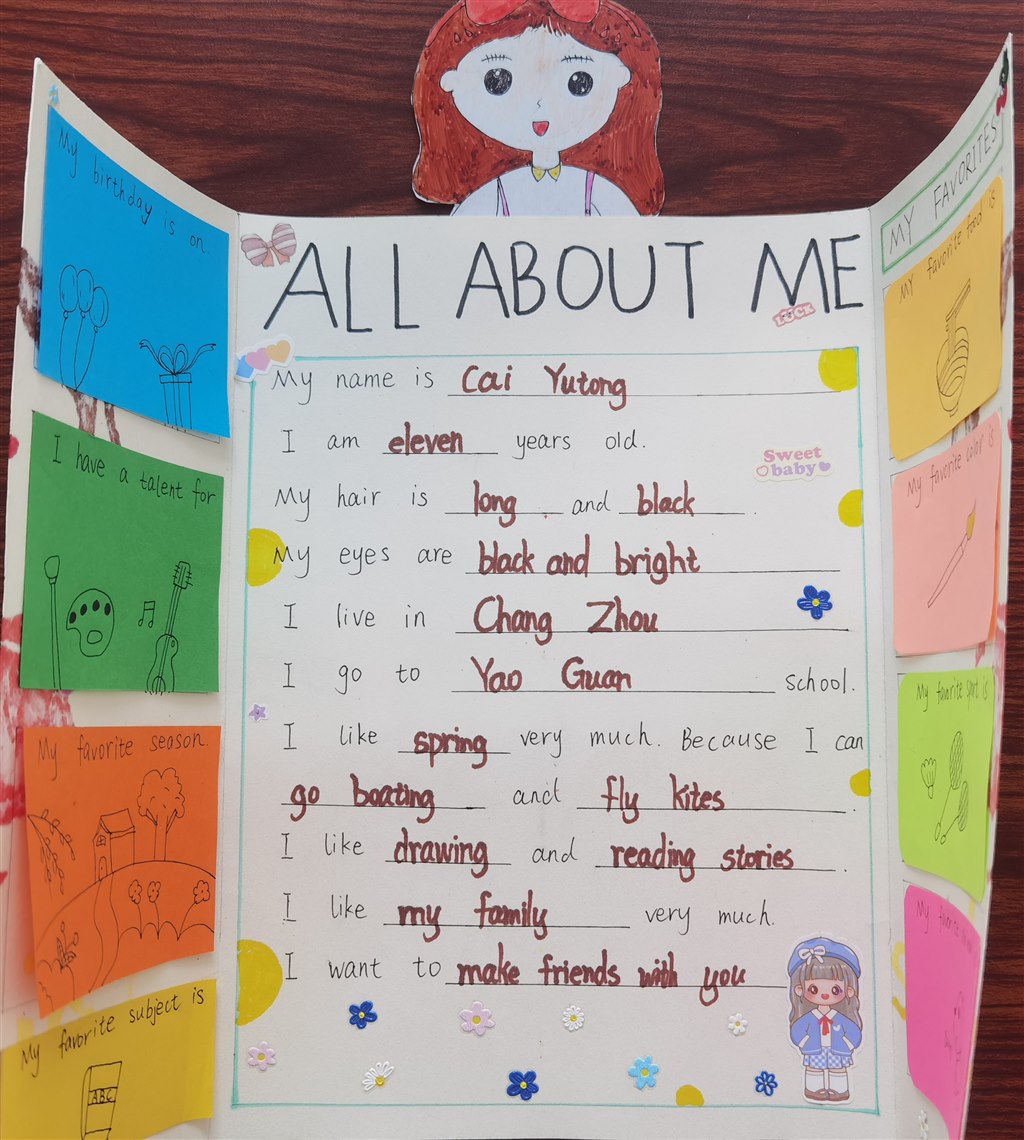 ALL ABOUT ME
LUCK
My name is Cai Yutong
I am eleven years old.
Sweet
baby
My hair is long and black.
My eyes are black and bright
I live in Chang Zhou
I go to Yao Guan school.
I like spring very much. Because I can
go boating and fly kites.
I like drawing and reading stories.
I like my family very much.
I want to make friends with you
My birthday is on.
I have a talent for
My favorite season.
My favorite subject is
ABC
MY FAVORITES
My favorite food is
My favorite color is
My favorite sport is
My favorite